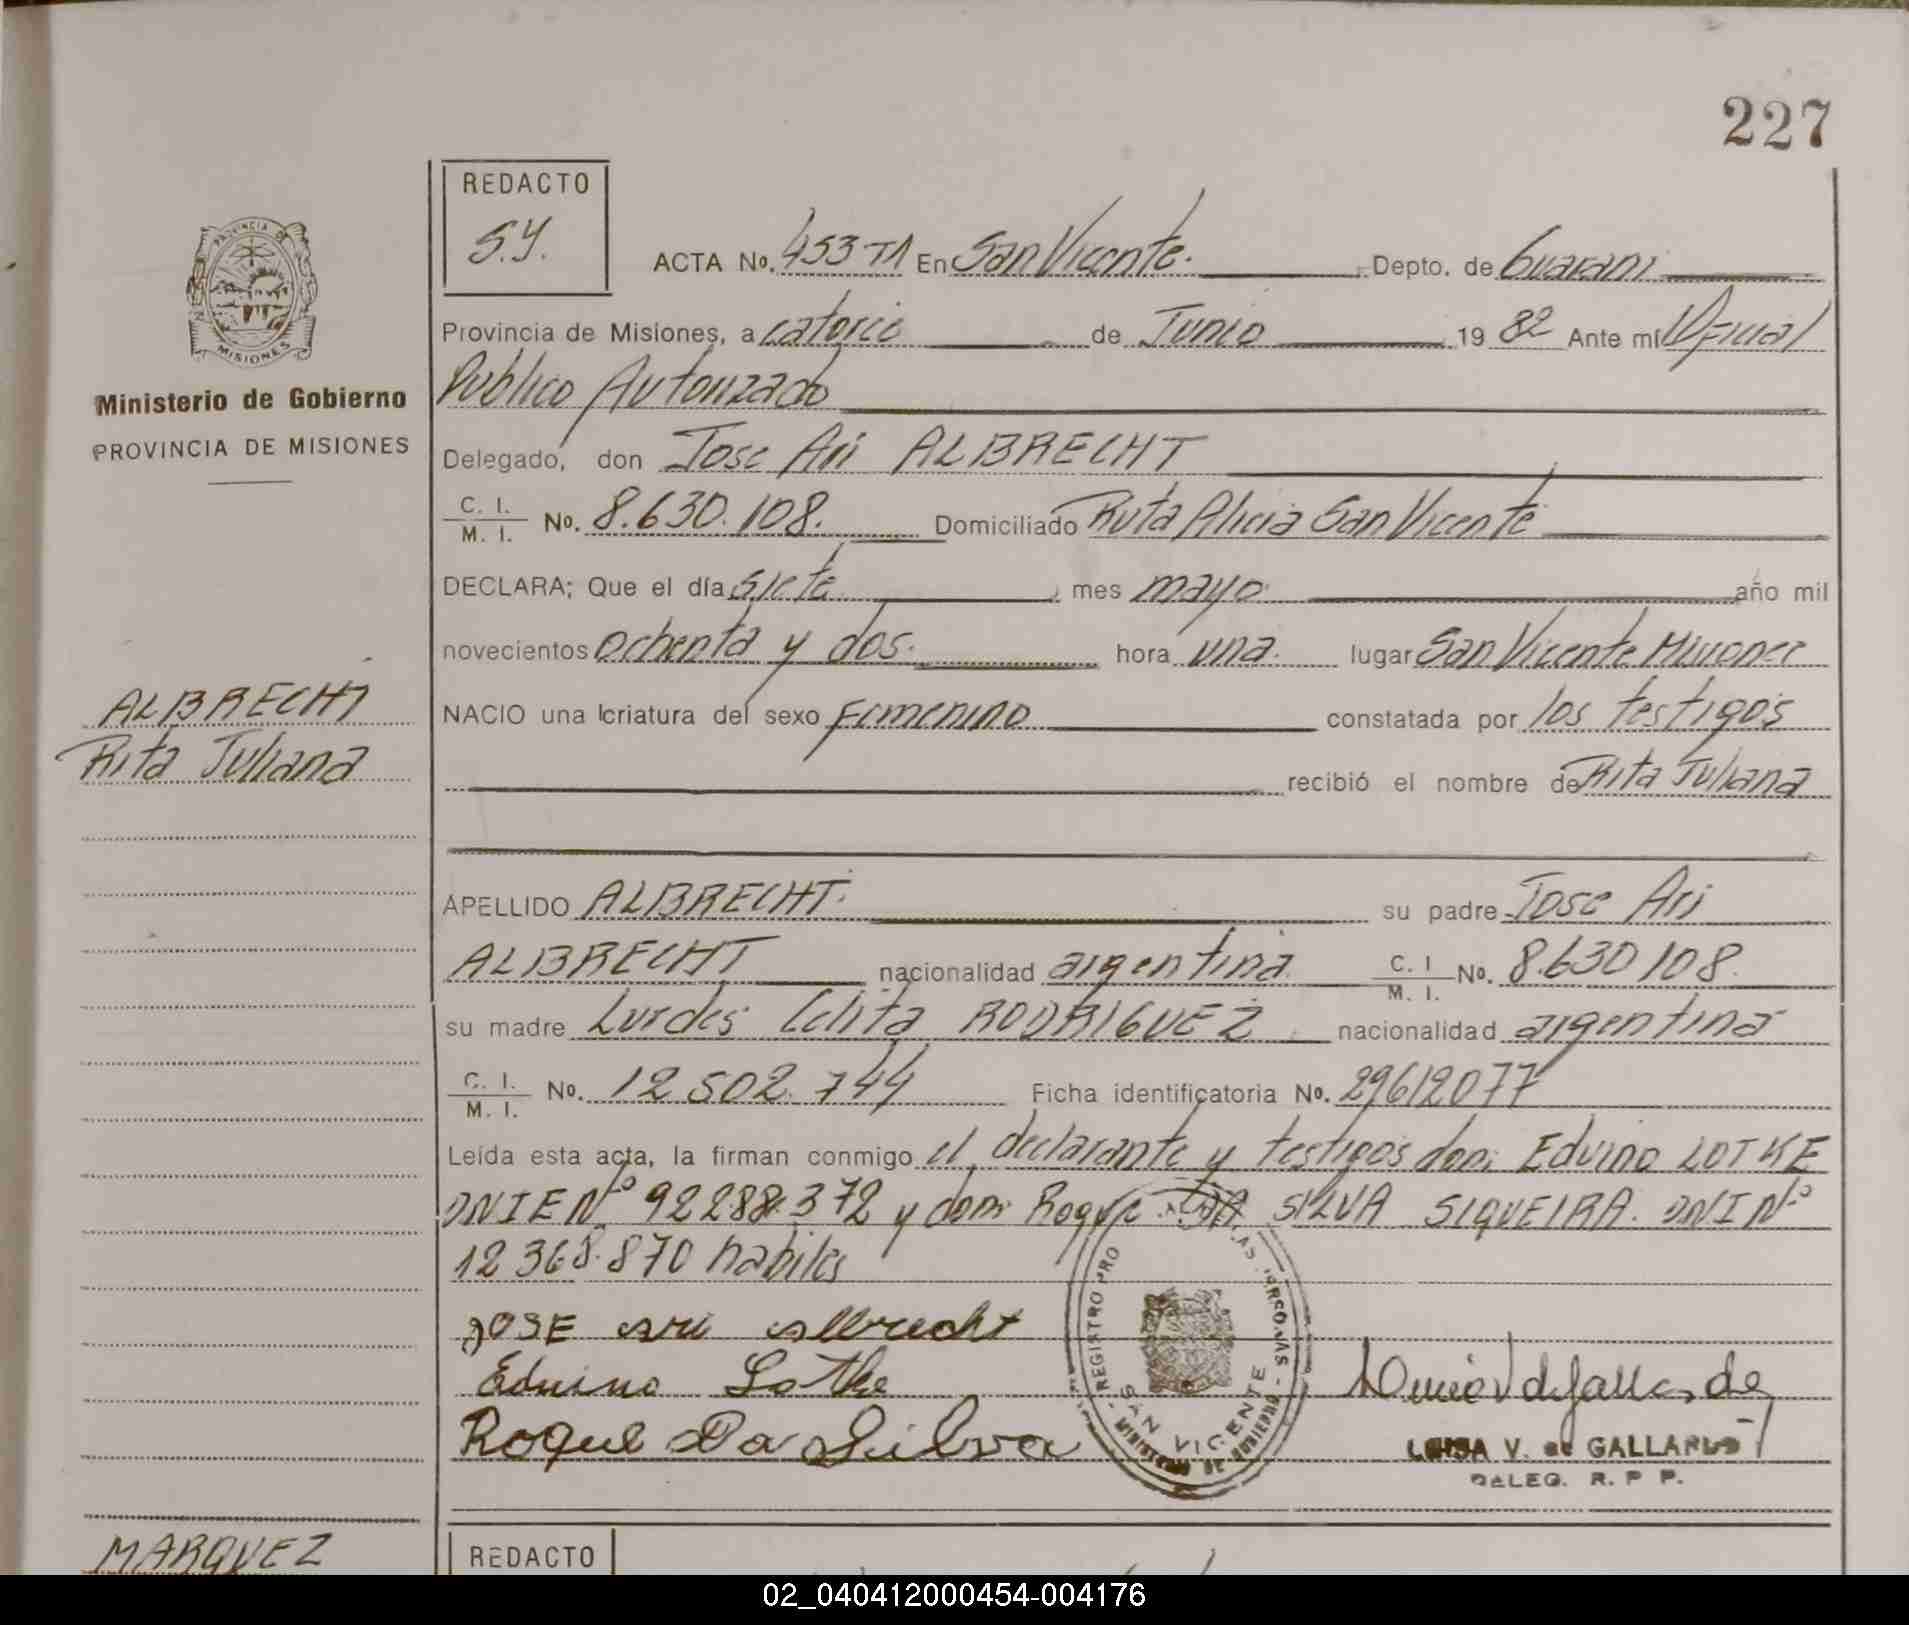 227
REDACTO
S.Y.
ACTA No. 453 T1 En San Vicente. Depto. de Guarani
Provincia de Misiones, a catorce de Junio 19 82 Ante mí Oficial
Publico Autorizado
Delegado, don Jose Ari ALBRECHT
C. I.
M. I. No. 8.630.108. Domiciliado Ruta Alicia San Vicente
DECLARA; Que el día siete mes mayo año mil
novecientos ochenta y dos. hora una. lugar San Vicente Misiones
NACIO una criatura del sexo Femenino constatada por los testigos
recibió el nombre de Rita Juliana
APELLIDO ALBRECHT. su padre Jose Ari
ALBRECHT nacionalidad argentina C. I.
M. I. No. 8.630 108.
su madre Lurdes Celita RODRIGUEZ nacionalidad argentina
C. I.
M. I. No. 12 502. 744 Ficha identificatoria No. 29612077
Leída esta acta, la firman conmigo el declarante y testigos don: Edvino LOTKE
DNIE Nº 92288.372 y don: Roque DA SILVA SIQUEIRA. DNI Nº
12 368.870 habiles
JOSE Ari Albrecht
Edvino Lotke
Roque Da Silva
REGISTRO PRO LAS PERSONAS
SAN VICENTE
MINISTERIO DE GOBIERNO
LUISA V. de GALLARDO
DELEG. R. P P.
PROVINCIA DE
MISIONES
Ministerio de Gobierno
PROVINCIA DE MISIONES
ALBRECHT
Rita Juliana
MARQUEZ
REDACTO
02_040412000454-004176